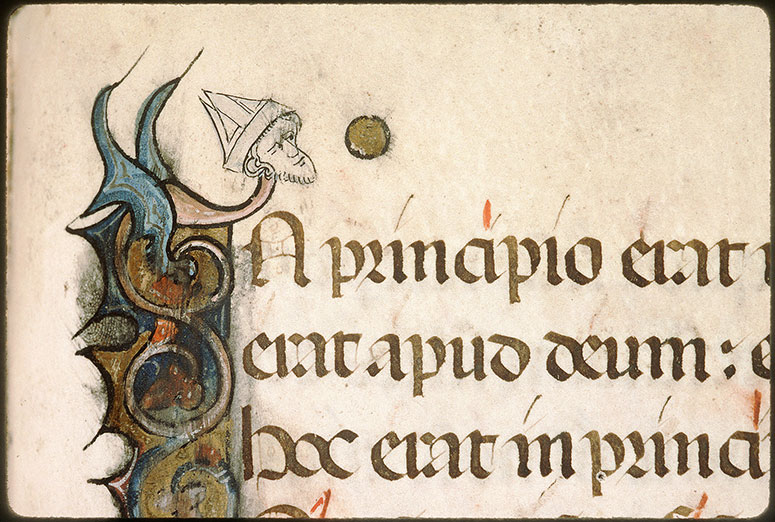 IN principio erat
erat apud deum : e
hoc erat in princi